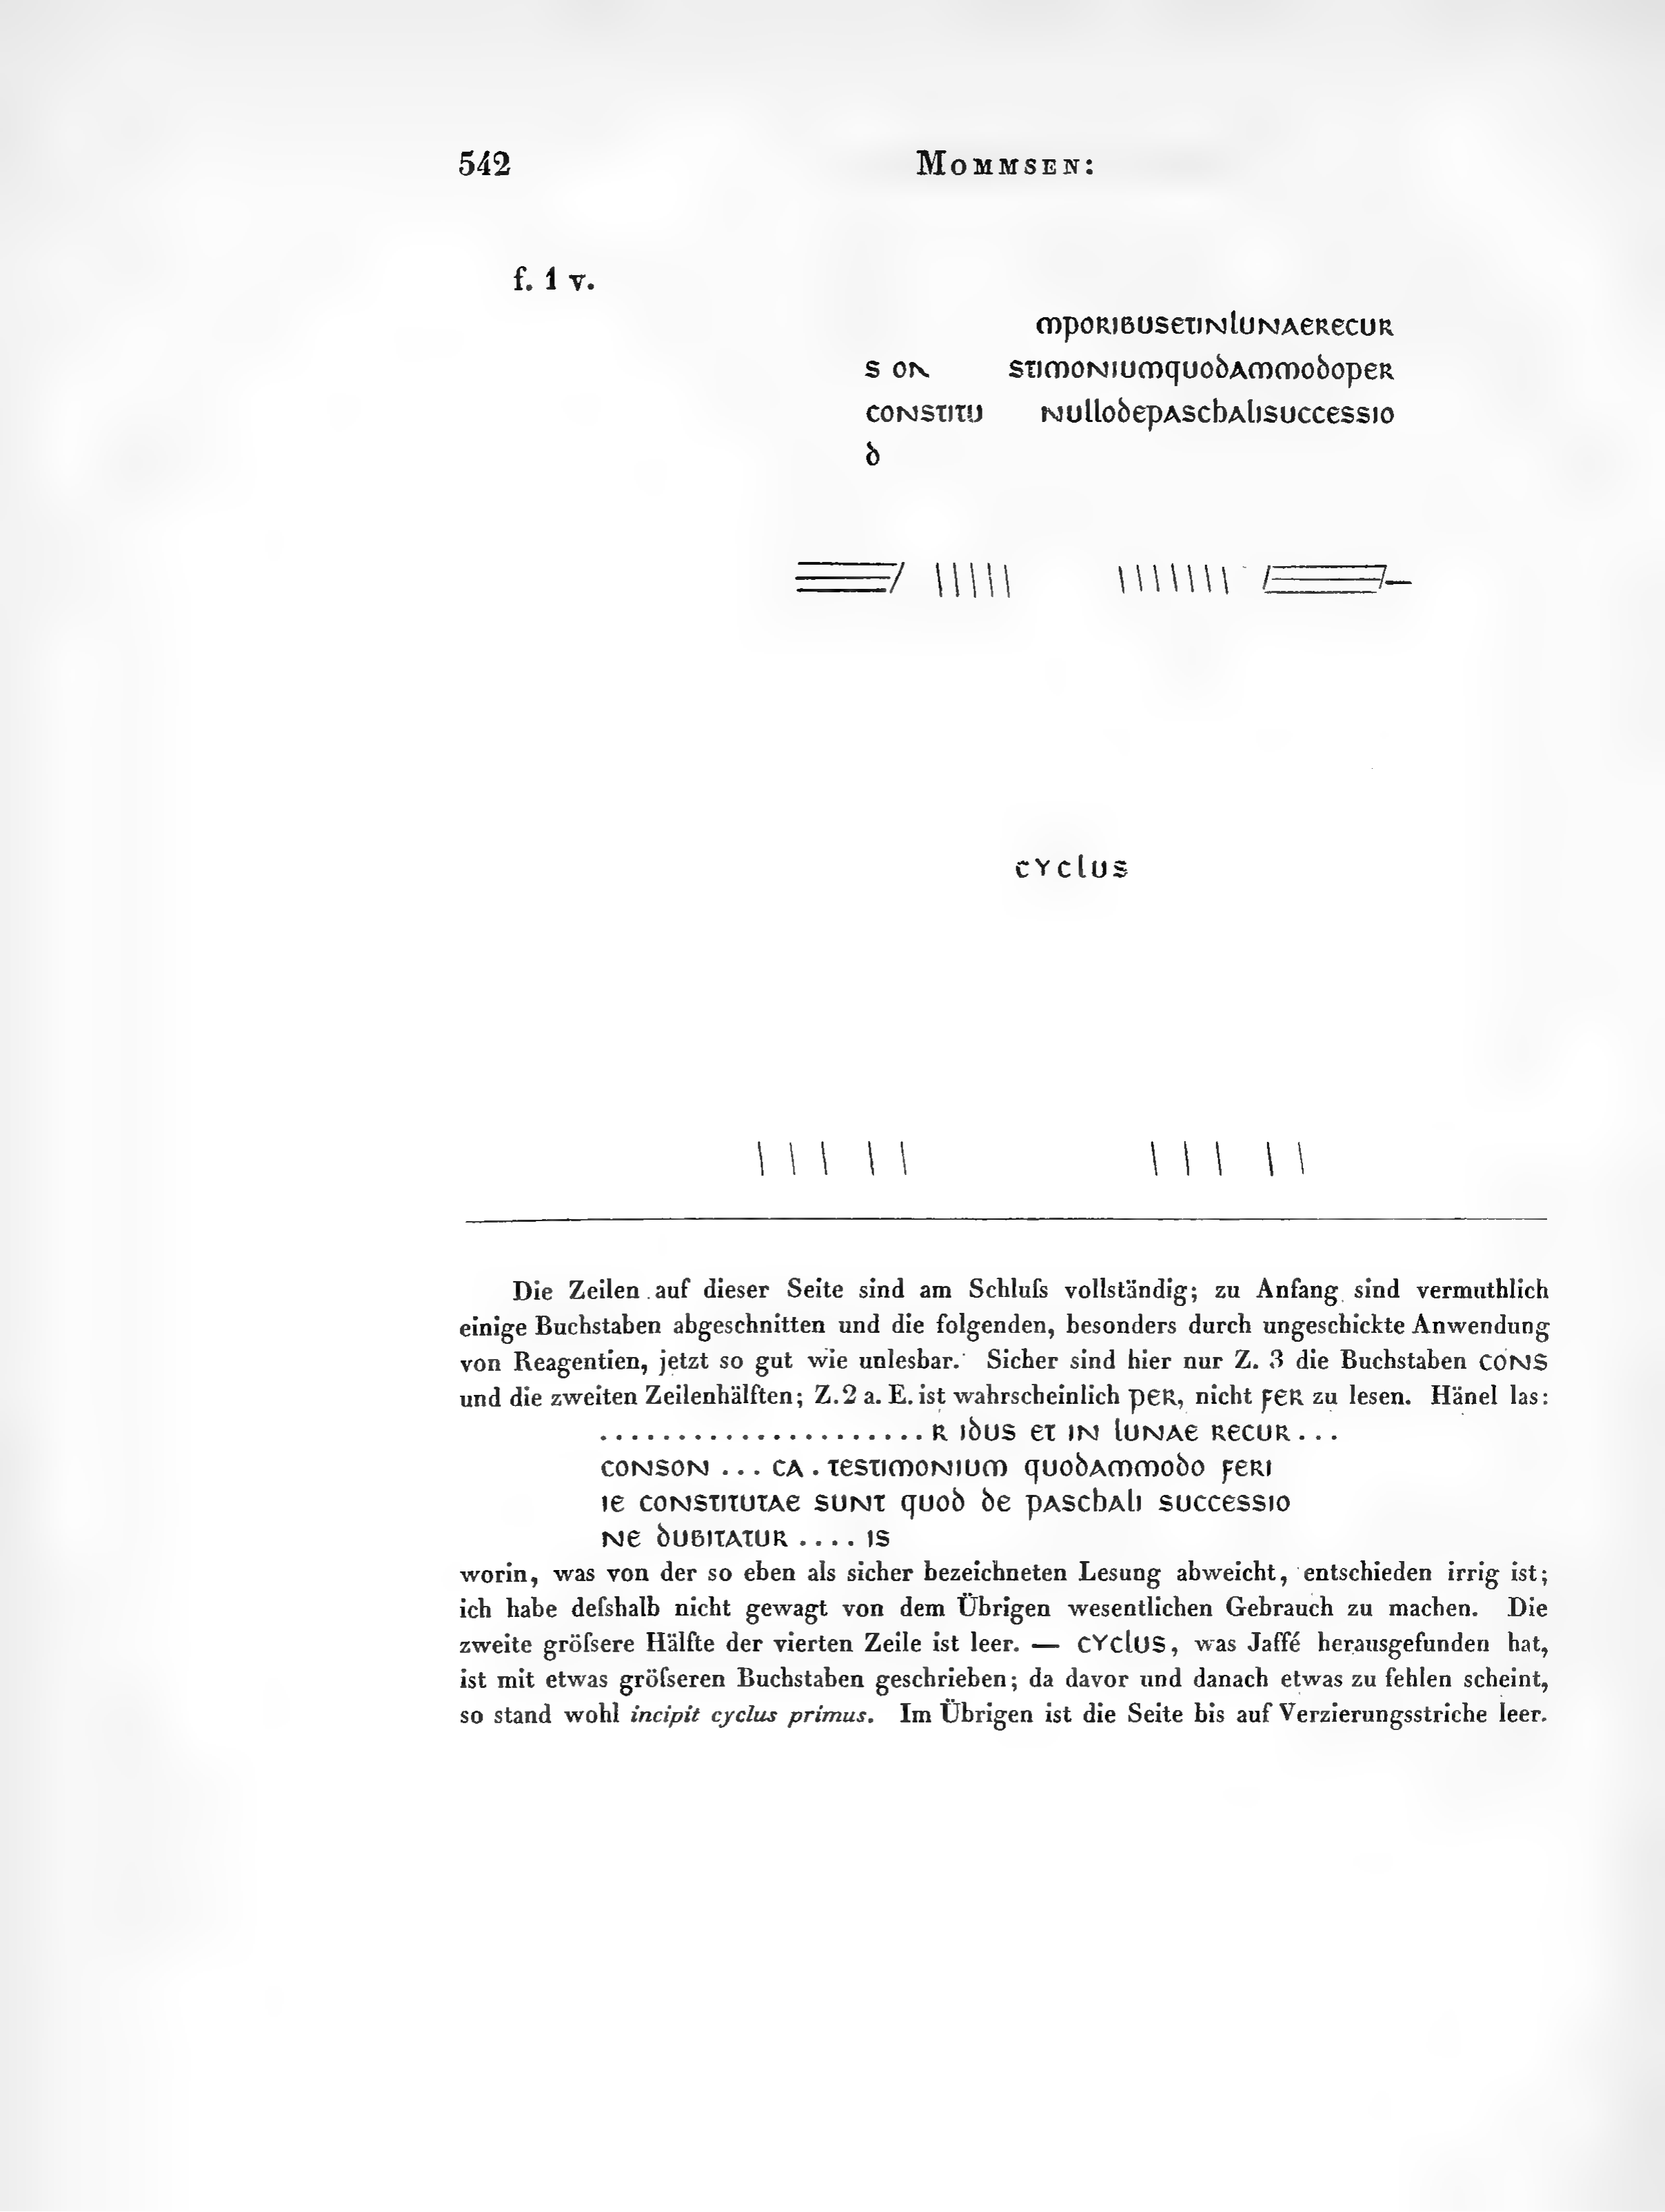 542 MOMMSEN:
f. 1 v.
mporibusetinlunaerecur
s on stimoniumquodammodoper
constitu nullodepaschalisuccessio
d
cyclus
Die Zeilen auf dieser Seite sind am Schluſs vollständig; zu Anfang sind vermuthlich
einige Buchstaben abgeschnitten und die folgenden, besonders durch ungeschickte Anwendung
von Reagentien, jetzt so gut wie unlesbar. Sicher sind hier nur Z. 3 die Buchstaben cons
und die zweiten Zeilenhälften; Z. 2 a. E. ist wahrscheinlich per, nicht fer zu lesen. Hänel las:
..................... r idus et in lunae recur...
conson ... ca . testimonium quodammodo feri
ie constitutae sunt quod de paschali successio
ne dubitatur .... is
worin, was von der so eben als sicher bezeichneten Lesung abweicht, entschieden irrig ist;
ich habe deſshalb nicht gewagt von dem Übrigen wesentlichen Gebrauch zu machen. Die
zweite gröſsere Hälfte der vierten Zeile ist leer. — cyclus, was Jaffé herausgefunden hat,
ist mit etwas gröſseren Buchstaben geschrieben; da davor und danach etwas zu fehlen scheint,
so stand wohl incipit cyclus primus. Im Übrigen ist die Seite bis auf Verzierungsstriche leer.